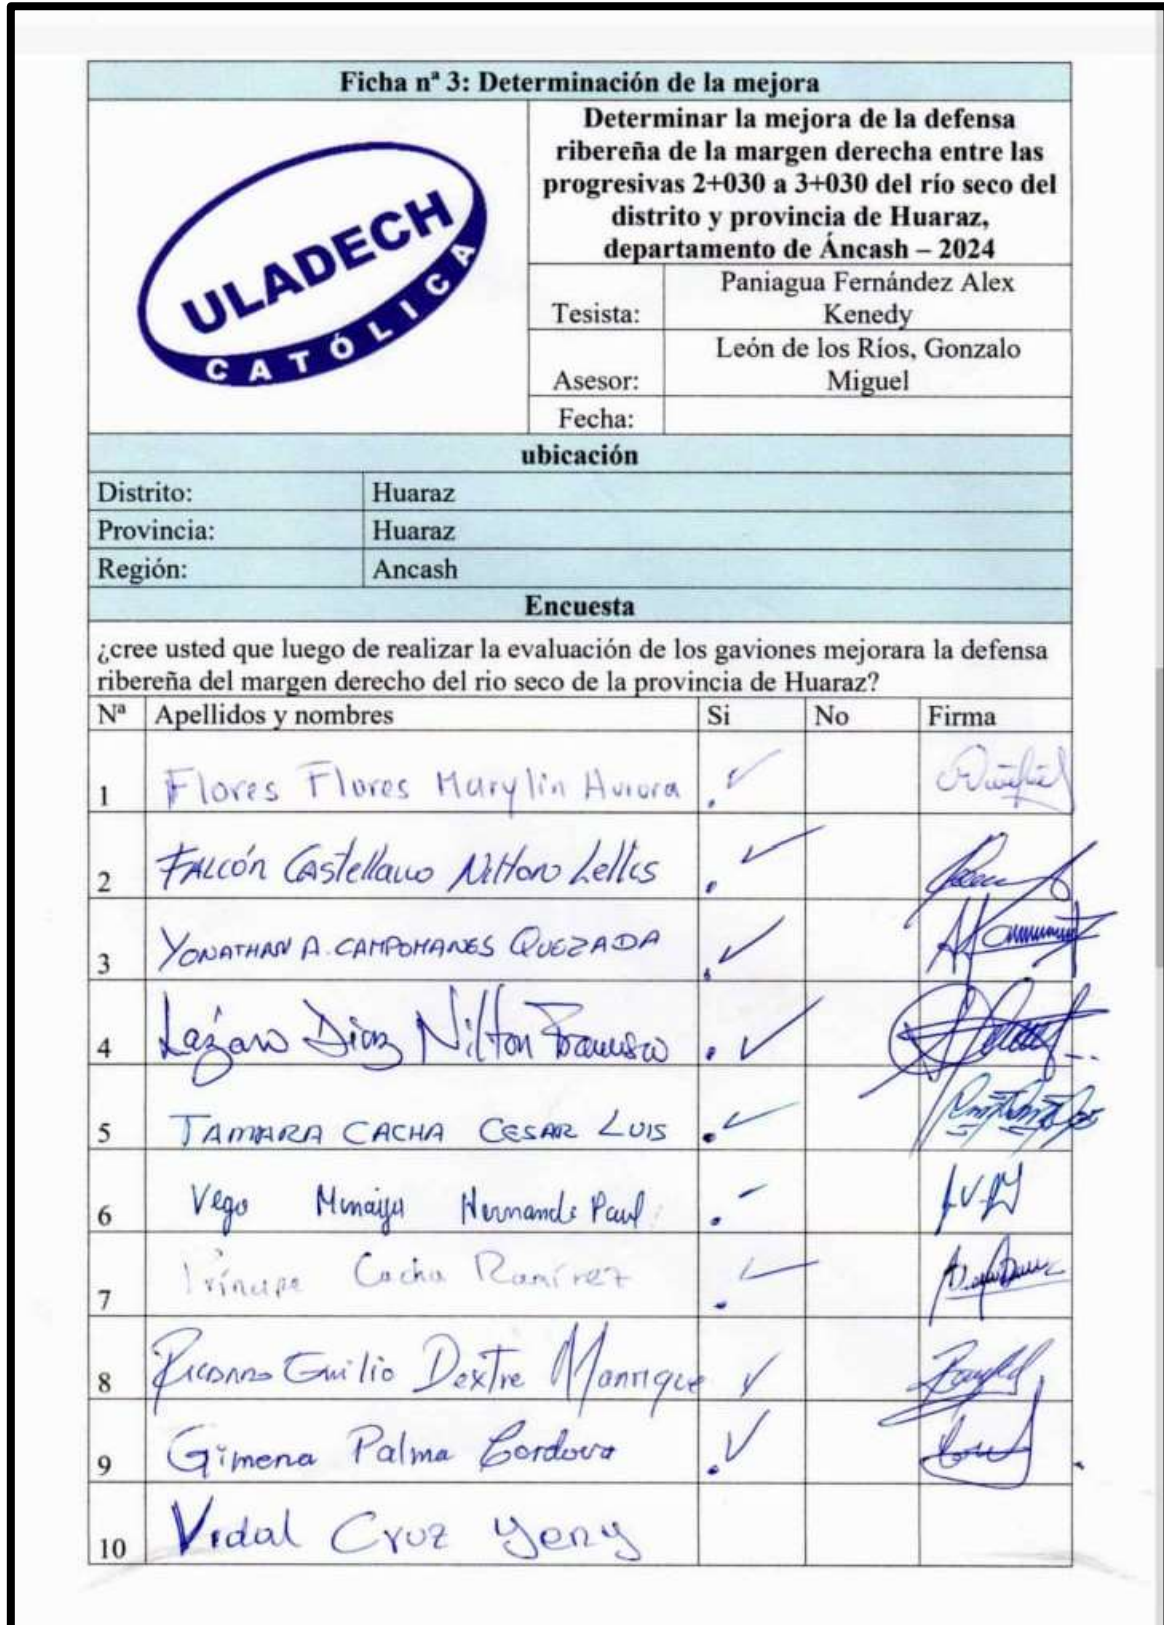 Ficha nª 3: Determinación de la mejora
ULADECH
CATÓLICA
Determinar la mejora de la defensa
ribereña de la margen derecha entre las
progresivas 2+030 a 3+030 del río seco del
distrito y provincia de Huaraz,
departamento de Áncash – 2024
Tesista: Paniagua Fernández Alex
Kenedy
Asesor: León de los Ríos, Gonzalo
Miguel
Fecha:
ubicación
Distrito: Huaraz
Provincia: Huaraz
Región: Ancash
Encuesta
¿cree usted que luego de realizar la evaluación de los gaviones mejorara la defensa
ribereña del margen derecho del rio seco de la provincia de Huaraz?
Nª Apellidos y nombres Si No Firma
1 Flores Flores Marylin Aurora
2 FALCÓN Castellano
3 YONATHAN A. CAMPOMANES QUEZADA
4 Lázaro Diaz Nilton Francisco
5 TAMARA CACHA CESAR LUIS
6 Vega Paul
7 Príncipe Cacha Ramírez
8 Emilio Dextre Manrique
9 Gimena Palma Cordova
10 Vidal Cruz Yeny